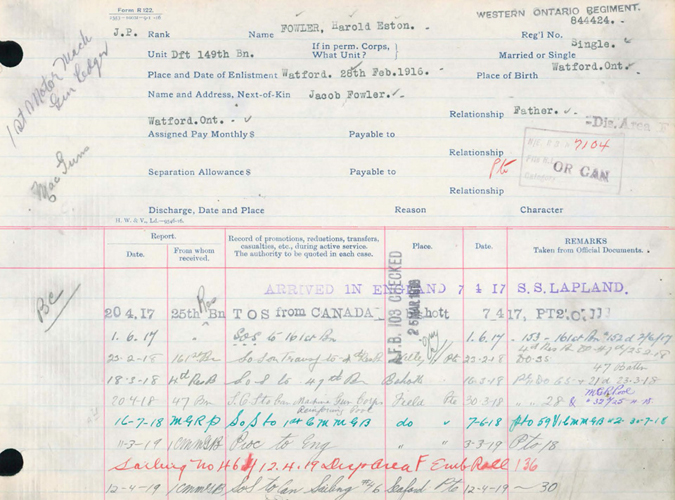 Form R 122.
WESTERN ONTARIO REGIMENT.
J.P. Rank Name FOWLER, Harold Eston. Reg'l No. 844424.
Unit Dft 149th Bn. If in perm. Corps, What Unit? Married or Single Single.
Place and Date of Enlistment Watford. 28th Feb.1916. Place of Birth Watford.Ont.
Name and Address, Next-of-Kin Jacob Fowler.
Watford.Ont. - Relationship Father.
Dis. Area
Assigned Pay Monthly $ Payable to
Relationship
7104
Separation Allowance $ Payable to
Pte
OR CAN
Relationship
Mac Guns
Discharge, Date and Place Reason Character
H. W. & V., Ld.
Report. Record of promotions, reductions, transfers, casualties, etc., during active service. The authority to be quoted in each case. Place. Date. REMARKS Taken from Official Documents.
Date. From whom received.
A.F.B. 103 CHECKED
ARRIVED IN ENGLAND 7 4 17 S.S.LAPLAND.
20 4.17 25th Res Bn TOS from CANADA 7 4 17,
1.6.17 " SOS to 161st Bn 1.6.17
22-2-18 161st Bn 22-2-18 DO
47 Batln
18-3-18 4th Res B SoS to 47th Bn
20-4-18 47 Bn Machine Gun Corps Field Pte 30-3-18 " " 28 &
Reinforcing Pool
16-7-18 MGRP SoS to 1st CMMGB do " 7-6-18
11-3-19 1CMMGB Proc to Eng " 3-3-19 Pt 18
Sailing No 46 12.4.19 Disp Area F Emb Roll 136
12-4-19 1CMMGB SoS to Can Sailing Seaford Pte 12-4-19 ~ 30